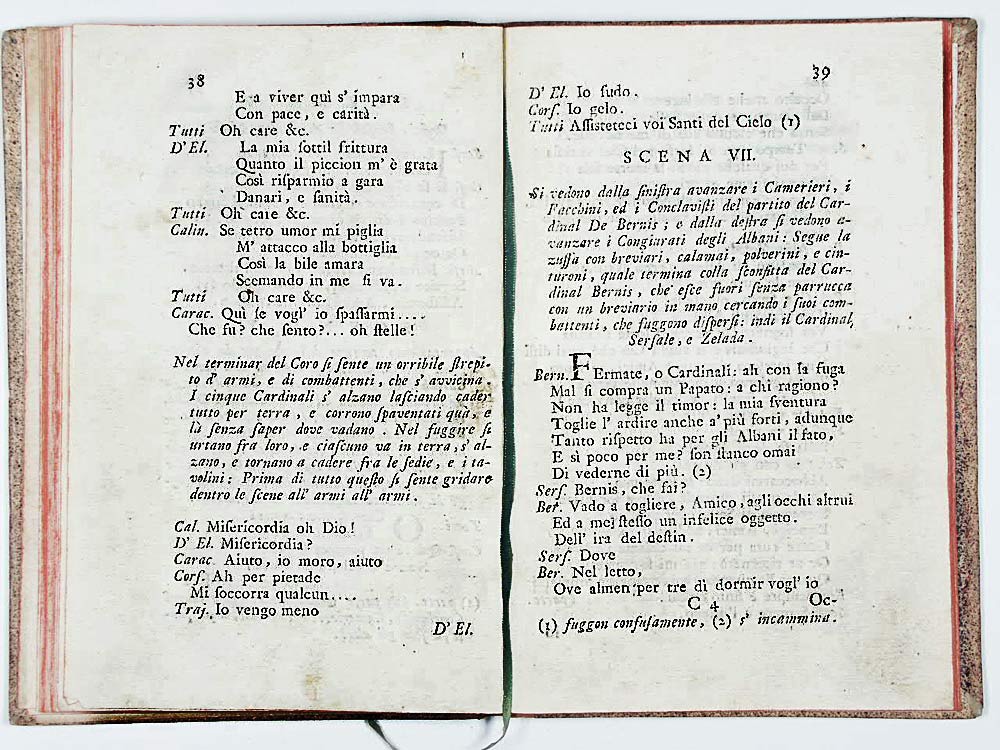 38
E a viver quì s' impara
Con pace, e carità.
Tutti Oh care &c.
D' El. La mia ſottil frittura
Quanto il piccion m' è grata
Così riſparmio a gara
Danari, e ſanità.
Tutti Oh care &c.
Calin. Se tetro umor mi piglia
M' attacco alla bottiglia
Così la bile amara
Scemando in me ſi va.
Tutti Oh care &c.
Carac. Quì ſe vogl' io ſpaſſarmi....
Che fu? che ſento?... oh ſtelle!
Nel terminar del Coro ſi ſente un orribile ſtrepi-
to d' armi, e di combattenti, che s' avvicina.
I cinque Cardinali s' alzano laſciando cader
tutto per terra, e corrono ſpaventati quà, e
là ſenza ſaper dove vadano. Nel fuggire ſi
urtano fra loro, e ciaſcuno va in terra, s' al-
zano, e tornano a cadere fra le ſedie, e i ta-
volini: Prima di tutto queſto ſi ſente gridare
dentro le ſcene all' armi all' armi.
Cal. Miſericordia oh Dio!
D' El. Miſericordia?
Carac. Aiuto, io moro, aiuto
Corſ. Ah per pietade
Mi ſoccorra qualcun....
Traj. Io vengo meno
D' El.
39
D' El. Io ſudo.
Corſ. Io gelo.
Tutti Aſſiſteteci voi Santi del Cielo (1)
SCENA VII.
Si vedono dalla ſiniſtra avanzare i Camerieri, i
Facchini, ed i Conclaviſti del partito del Car-
dinal De Bernis; e dalla deſtra ſi vedono a-
vanzare i Congiurati degli Albani: Segue la
zuffa con breviari, calamai, polverini, e cin-
turoni, quale termina colla ſconfitta del Car-
dinal Bernis, che eſce fuori ſenza parrucca
con un breviario in mano cercando i ſuoi com-
battenti, che fuggono diſperſi: indi il Cardinal
Serſale, e Zelada.
Bern. FErmate, o Cardinali: ah con la fuga
Mal ſi compra un Papato: a chi ragiono?
Non ha legge il timor: la mia ſventura
Toglie l' ardire anche a' più forti, adunque
Tanto riſpetto ha per gli Albani il fato,
E sì poco per me? ſon ſtanco omai
Di vederne di più. (2)
Serſ. Bernis, che fai?
Ber. Vado a togliere, Amico, agli occhi altrui
Ed a me ſteſſo un infelice oggetto.
Dell' ira del deſtin.
Serſ. Dove
Ber. Nel letto,
Ove almen per tre dì dormir vogl' io
C 4 Oc-
(1) fuggon confuſamente, (2) s' incammina.